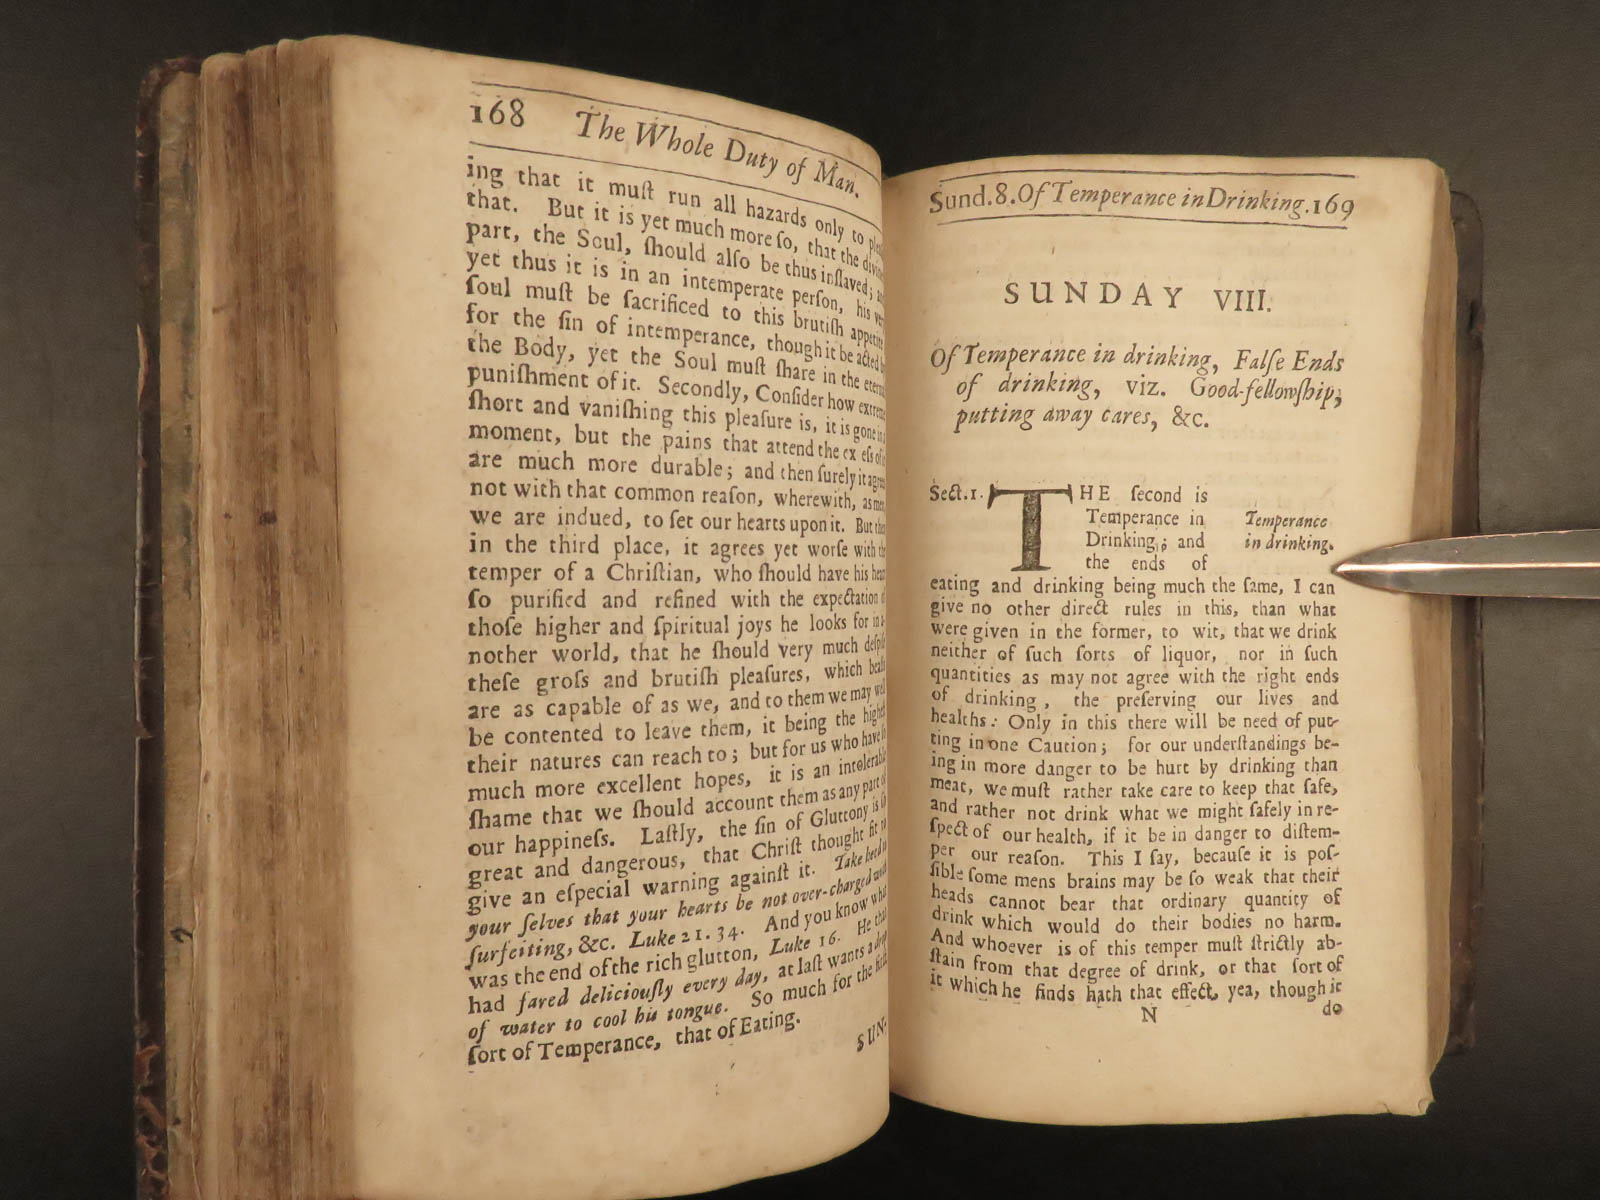 168 The Whole Duty of Man.
ing that it muſt run all hazards only to
that. But it is yet much more ſo, that the
part, the Soul, ſhould alſo be thus inſlaved;
yet thus it is in an intemperate perſon, his
ſoul muſt be ſacrificed to this brutiſh
for the ſin of intemperance, though it be acted
the Body, yet the Soul muſt ſhare in the
puniſhment of it. Secondly, Conſider how
ſhort and vaniſhing this pleaſure is, it is gone
moment, but the pains that attend the ex eſs
are much more durable; and then ſurely it
not with that common reaſon, wherewith, as
we are indued, to ſet our hearts upon it. But
in the third place, it agrees yet worſe with
temper of a Chriſtian, who ſhould have his
ſo purified and refined with the expectation
thoſe higher and ſpiritual joys he looks for in
nother world, that he ſhould very much
theſe groſs and brutiſh pleaſures, which
are as capable of as we, and to them we may
be contented to leave them, it being the
their natures can reach to; but for us who have
much more excellent hopes, it is an
ſhame that we ſhould account them as any part
our happineſs. Laſtly, the ſin of Gluttony is
great and dangerous, that Chriſt thought fit
give an eſpecial warning againſt it. Take heed
your ſelves that your hearts be not over-charged
ſurfeiting, &c. Luke 21. 34. And you know
was the end of the rich glutton, Luke 16. He
had fared deliciouſly every day, at laſt wants a
of water to cool his tongue. So much for the
ſort of Temperance, that of Eating.
SUN-
Sund. 8. Of Temperance in Drinking. 169
SUNDAY VIII.
Of Temperance in drinking, Falſe Ends
of drinking, viz. Good-fellowſhip,
putting away cares, &c.
Sect. 1. THE ſecond is
Temperance in
Drinking; and
the ends of
Temperance
in drinking.
eating and drinking being much the ſame, I can
give no other direct rules in this, than what
were given in the former, to wit, that we drink
neither of ſuch ſorts of liquor, nor in ſuch
quantities as may not agree with the right ends
of drinking, the preſerving our lives and
healths: Only in this there will be need of put-
ting in one Caution; for our underſtandings be-
ing in more danger to be hurt by drinking than
meat, we muſt rather take care to keep that ſafe,
and rather not drink what we might ſafely in re-
ſpect of our health, if it be in danger to diſtem-
per our reaſon. This I ſay, becauſe it is poſ-
ſible ſome mens brains may be ſo weak that their
heads cannot bear that ordinary quantity of
drink which would do their bodies no harm.
And whoever is of this temper muſt ſtrictly ab-
ſtain from that degree of drink, or that ſort of
it which he finds hath that effect, yea, though it
N do